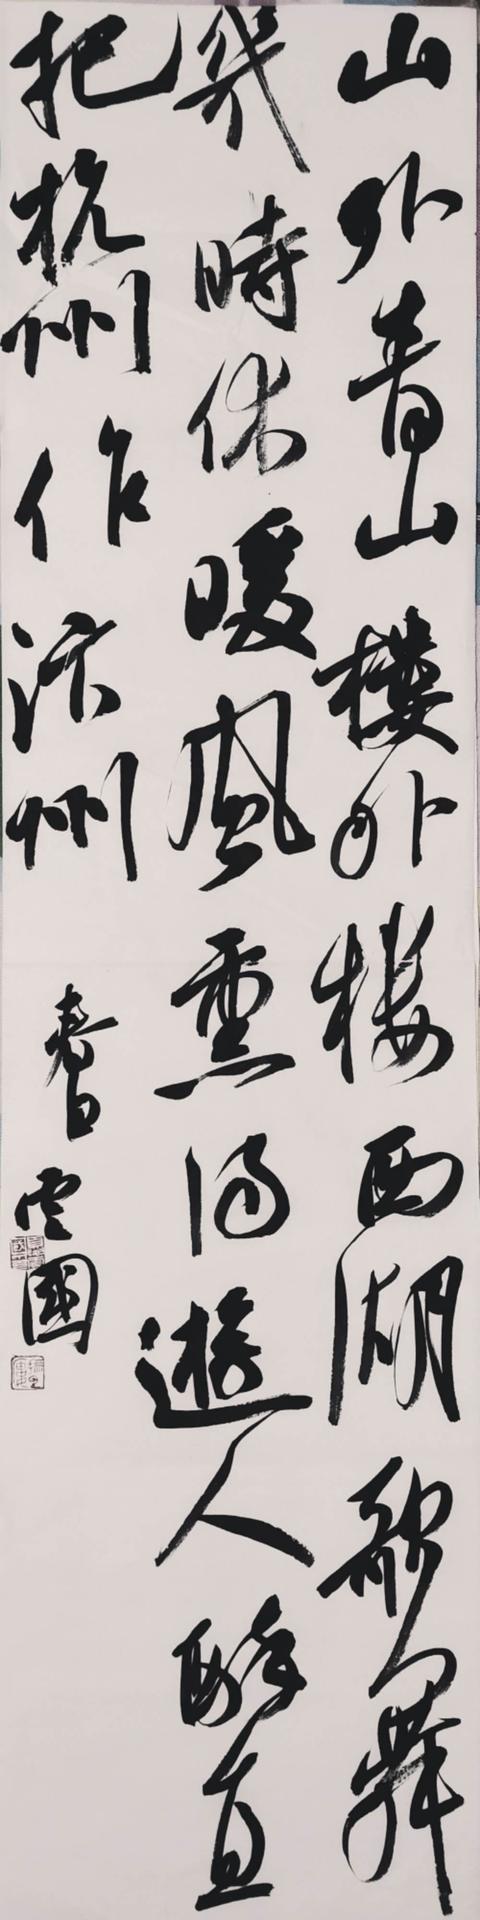 山外青山樓外楼西湖歌舞
幾時休暖風熏得遊人醉直
把杭州作汴州
春日
雲國